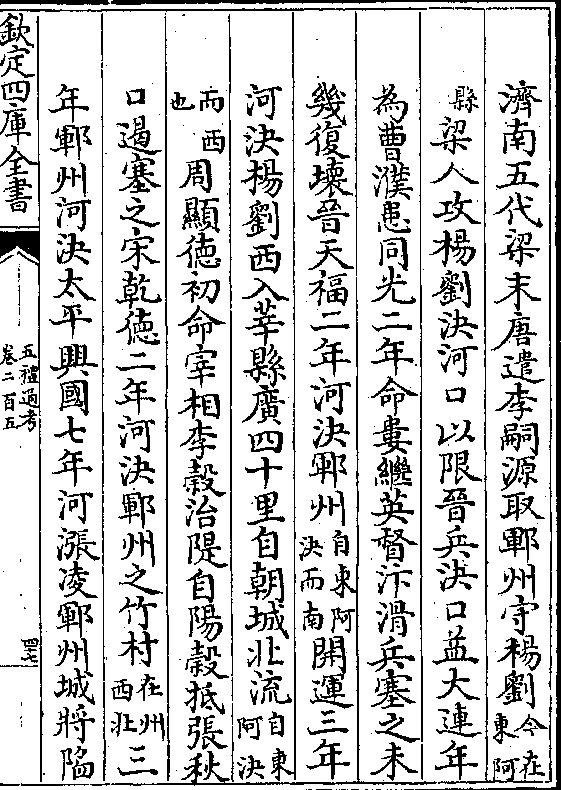 濟南五代梁末唐遣李嗣源取鄆州守楊劉今在東阿
縣梁人攻楊劉決河口以限晉兵決口益大連年
為曹濮患同光二年命婁繼英督汴滑兵塞之未
幾復壊晉天福二年河決鄆州自東阿決而南開運三年
河決楊劉西入莘縣廣四十里自朝城北流自東阿決
而西也周顯德初命宰相李榖治隄自陽榖抵張秋
口遏塞之宋乾德二年河決鄆州之竹村在州西北三
年鄆州河決太平興國七年河漲凌鄆州城將陷
欽定四庫全書
五禮通考
卷二百五
四七